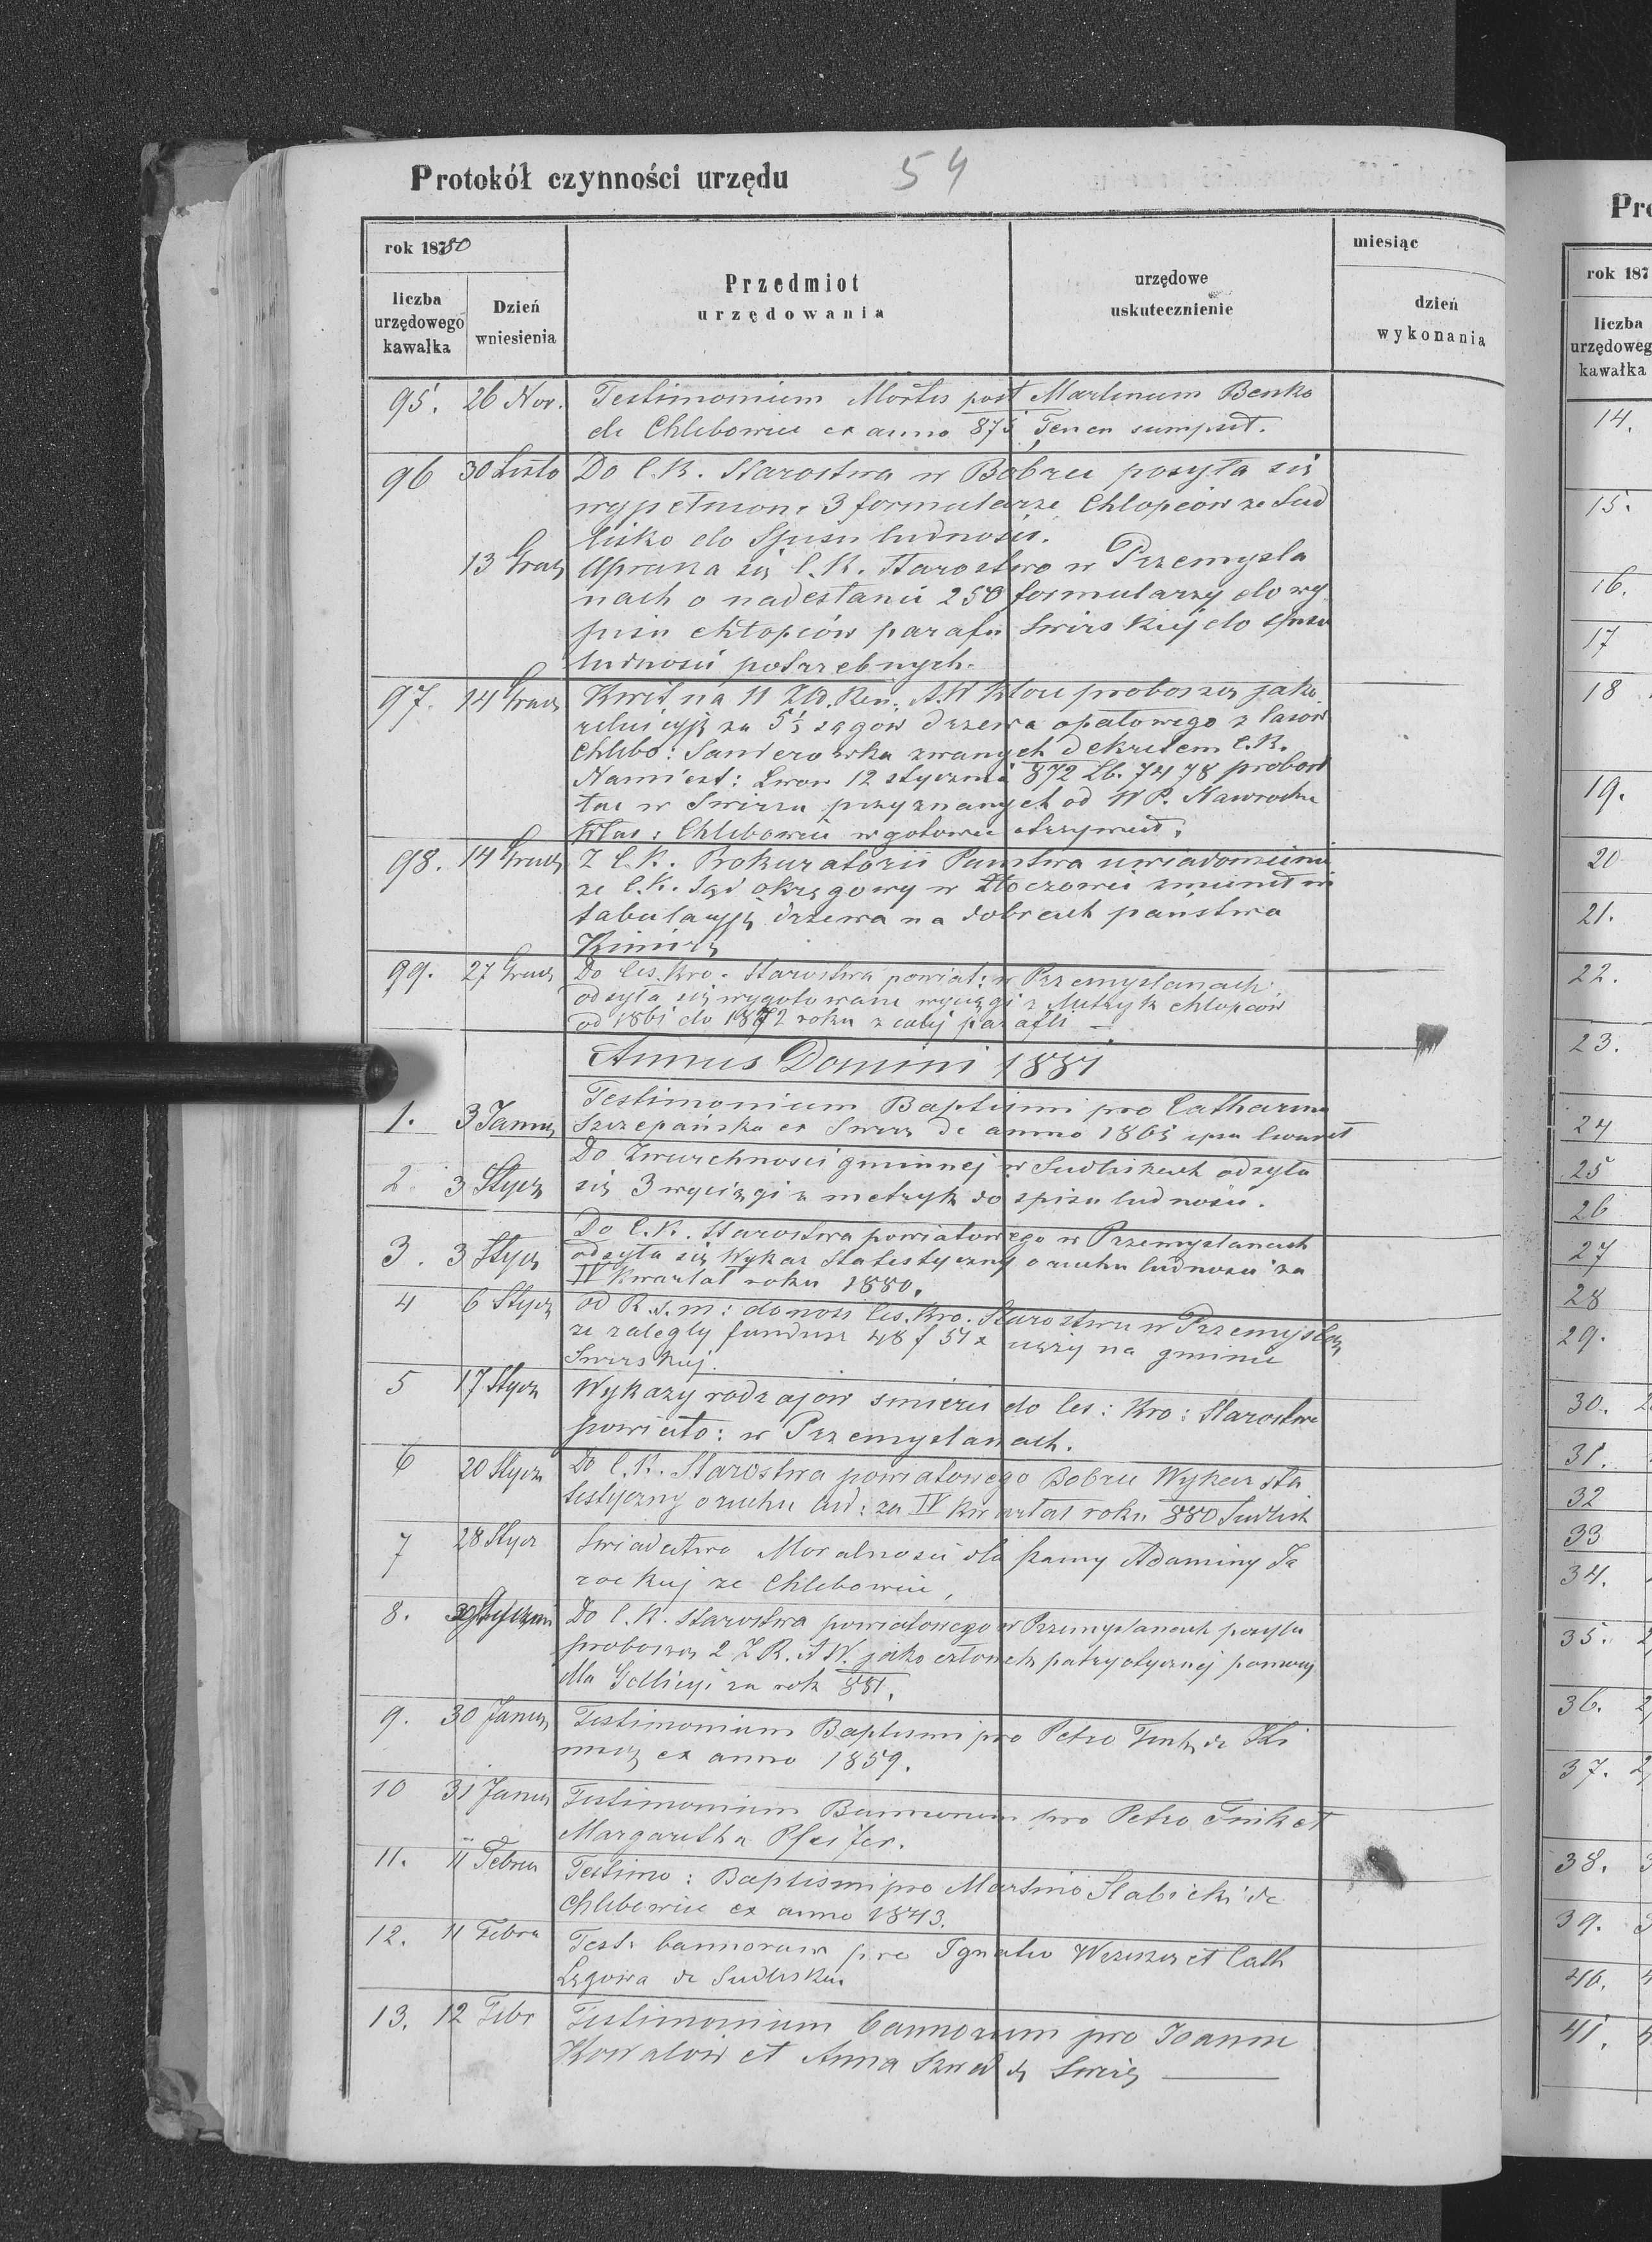 Protokół czynności urzędu 54
rok 1880
miesiąc
liczba urzędowego kawałka
Dzień wniesienia
Przedmiot urzędowania
urzędowe uskutecznienie
dzień wykonania
95. 26 Nov. Testimonium Mortis post Martinum Benko
de Chlebowice ex anno 875 sumpsit.
96 30 Listo Do C.K. Starostwa w Bobrce posyła się
wypełnione 3 formularze Chłopców ze Sud
lisko do Spisu ludności.
13 Grud Uprasza się C.K. Starostwo w Przemyśla
nach o nadesłanie 250 formularzy do wy
pisu chłopców parafii Swirskiej do spisu
ludności potrzebnych.
97. 14 Grud Kwit na 11 Złd. Ren. A.W. które proboszcz jako
relucyję za 5½ sągów drzewa opałowego z lasów
Chlebo: zwanych dekretem C.K.
Namiest: Lwow 12 stycznia 872 Lb. 7478 probost
twu w Swirzu przyznanych od WP.
Chlebowice w gotowce otrzymał.
98. 14 Grud Z C.K. Prokuratorii Państwa uwiadomienie
ze C.K. Sąd okręgowy w Złoczowie in
tabulacyję drzewa na dobrach państwa
Kimirz
99. 27 Grud Do Ces. Kro. Starostwa powiat: w Przemyslanach
odsyła się wygotowane wyciągi z Metryk chłopców
od 1861 do 1872 roku z całej parafii —
Annus Domini 1881
1. 3 Janua Testimonium Baptismi pro Catharina
Szczepańska ex Swirz de anno 1863
2. 3 Stycz Do Zwierzchności gminnej w Sudliskach odsyła
się 3 wyciągi z metryk do spisu ludności.
3. 3 Stycz Do C.K. Starostwa powiatowego w Przemyslanach
odsyła się Wykaz Statistyczny o ruchu ludności za
IV Kwartał roku 1880.
4 6 Stycz od R.s.m: donosi Ces. Kro. Starostwu w Przemyśla
ze zaległy fundusz 48 f 51 x ciąży na gminie
Swirskiej.
5 17 Stycz Wykazy rodzajów smierci do Ces: Kro: Starostwa
powiato: w Przemyslanach.
6 20 Stycz Do C.K. Starostwa powiatowego Bobrce Wykaz sta
tistyczny o ruchu lud: za IV kwartał roku 880 Sudlisk
7 28 Stycz Swiadectwo Moralności dla panny Adaminy Ja
rockiej ze Chlebowic,
8. Do C.K. Starostwa powiatowego w Przemyslanach posyła
proboszcz 2 Z.R. A.W. jako członek patryotycznej pomocy
dla Galicyi za rok 881.
9. 30 Janua Testimonium Baptismi pro Petro de Ki
mirz ex anno 1859.
10 31 Janua Testimonium Bannorum pro Petro et
Margaretha Pfeifer.
11. 11 Februa Testimo: Baptismi pro Martino Slabicki de
Chlebowice ex anno 1843.
12. 11 Februa Test. bannorum pro Ignatio et Cath
Lęgowa de Sudlisku.
13. 12 Febr Testimonium bannorum pro Joanne
Kowalow et Anna Szwed de Swirz —
Pro
rok 187
liczba
urzędoweg
kawałka
14.
15.
16.
17
18
19.
20
21.
22.
23.
24
25
26
27
28
29.
30.
31.
32
33
34.
35.
36.
37.
38.
39.
40.
41.